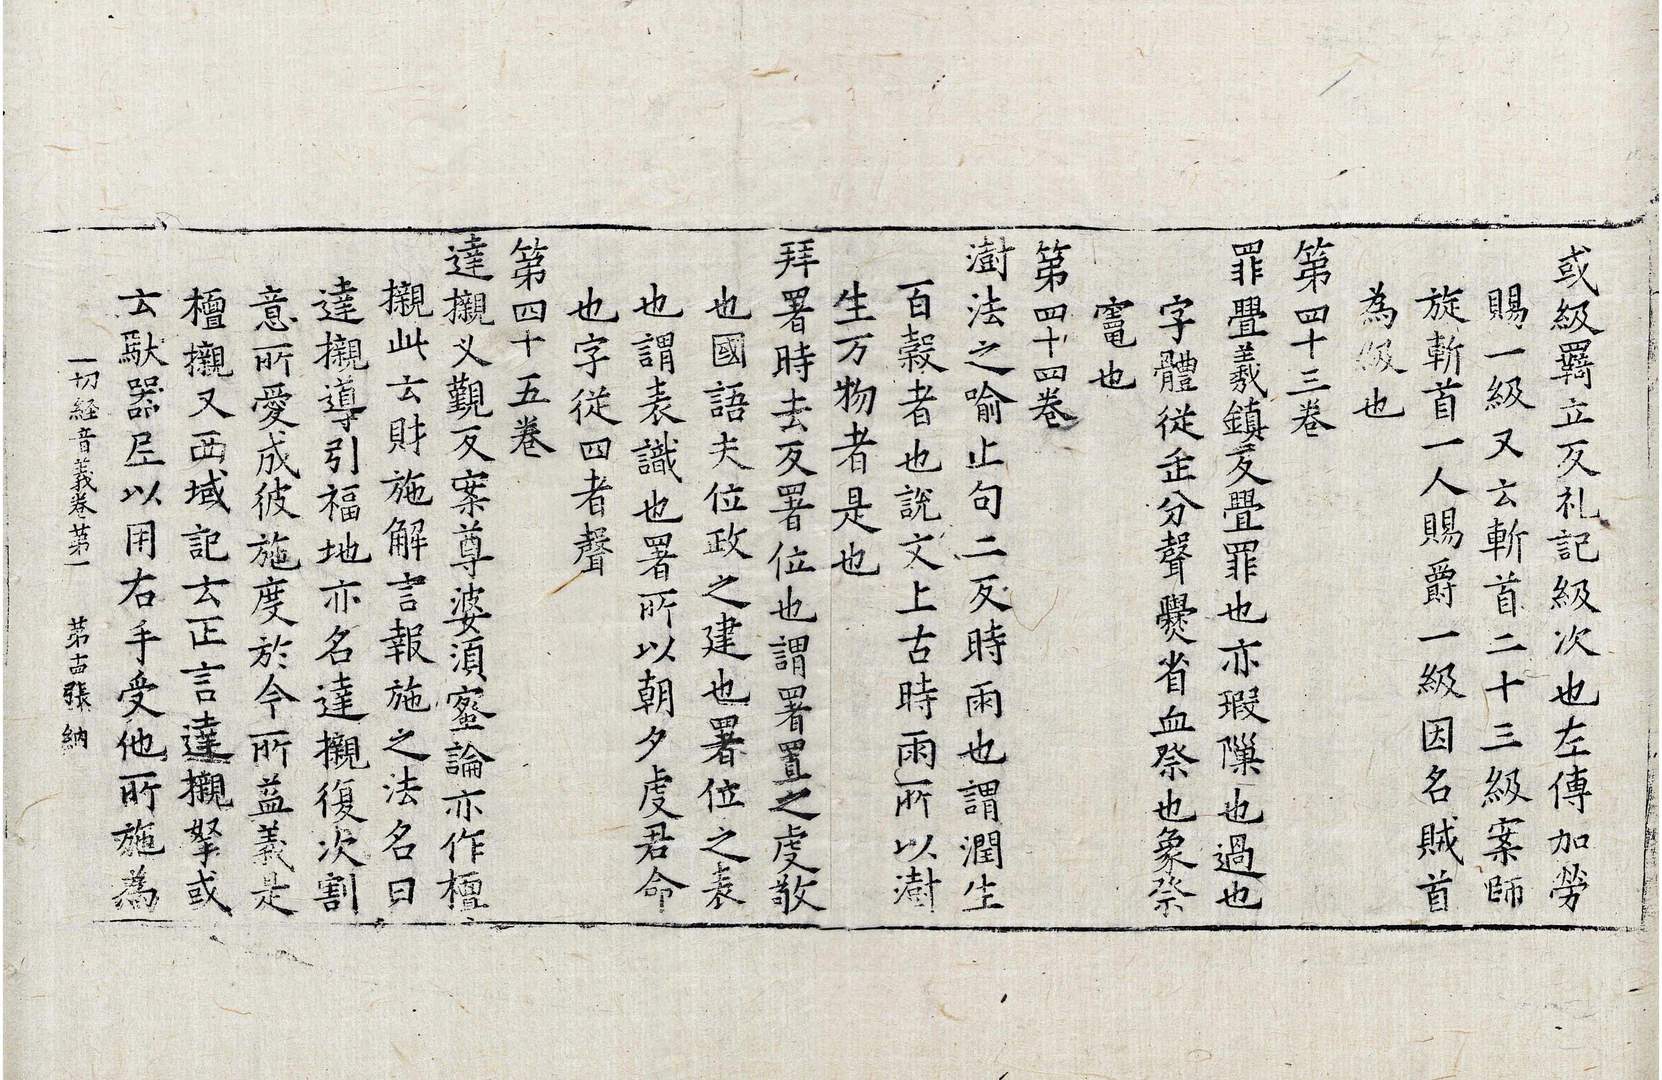 或級羈立反礼記級次也左傳加勞
賜一級又云斬首二十三級案師
旋斬首一人賜爵一級因名賊首
為級也
第四十三卷
罪舋義鎮反舋罪也亦瑕隟也過也
字體從酉分聲爨省血祭也象祭
竈也
第四十四卷
澍法之喻止句二反時雨也謂潤生
百穀者也說文上古時雨所以澍
生万物者是也
拜署時去反署位也謂署置之處敬
也國語夫位政之建也署位之表
也謂表識也署所以朝夕虔君命
也字従四者聲
第四十五卷
達櫬义觀反案尊婆湏蜜論亦作檀
櫬此云財施解言報施之法名曰
達櫬導引福地亦名達櫬復次割
意所愛成彼施度於今所益義是
檀櫬又西域記云正言達櫬拏或
云馱器尼以用右手受他所施為
一切経音義卷第一 第十四張 納